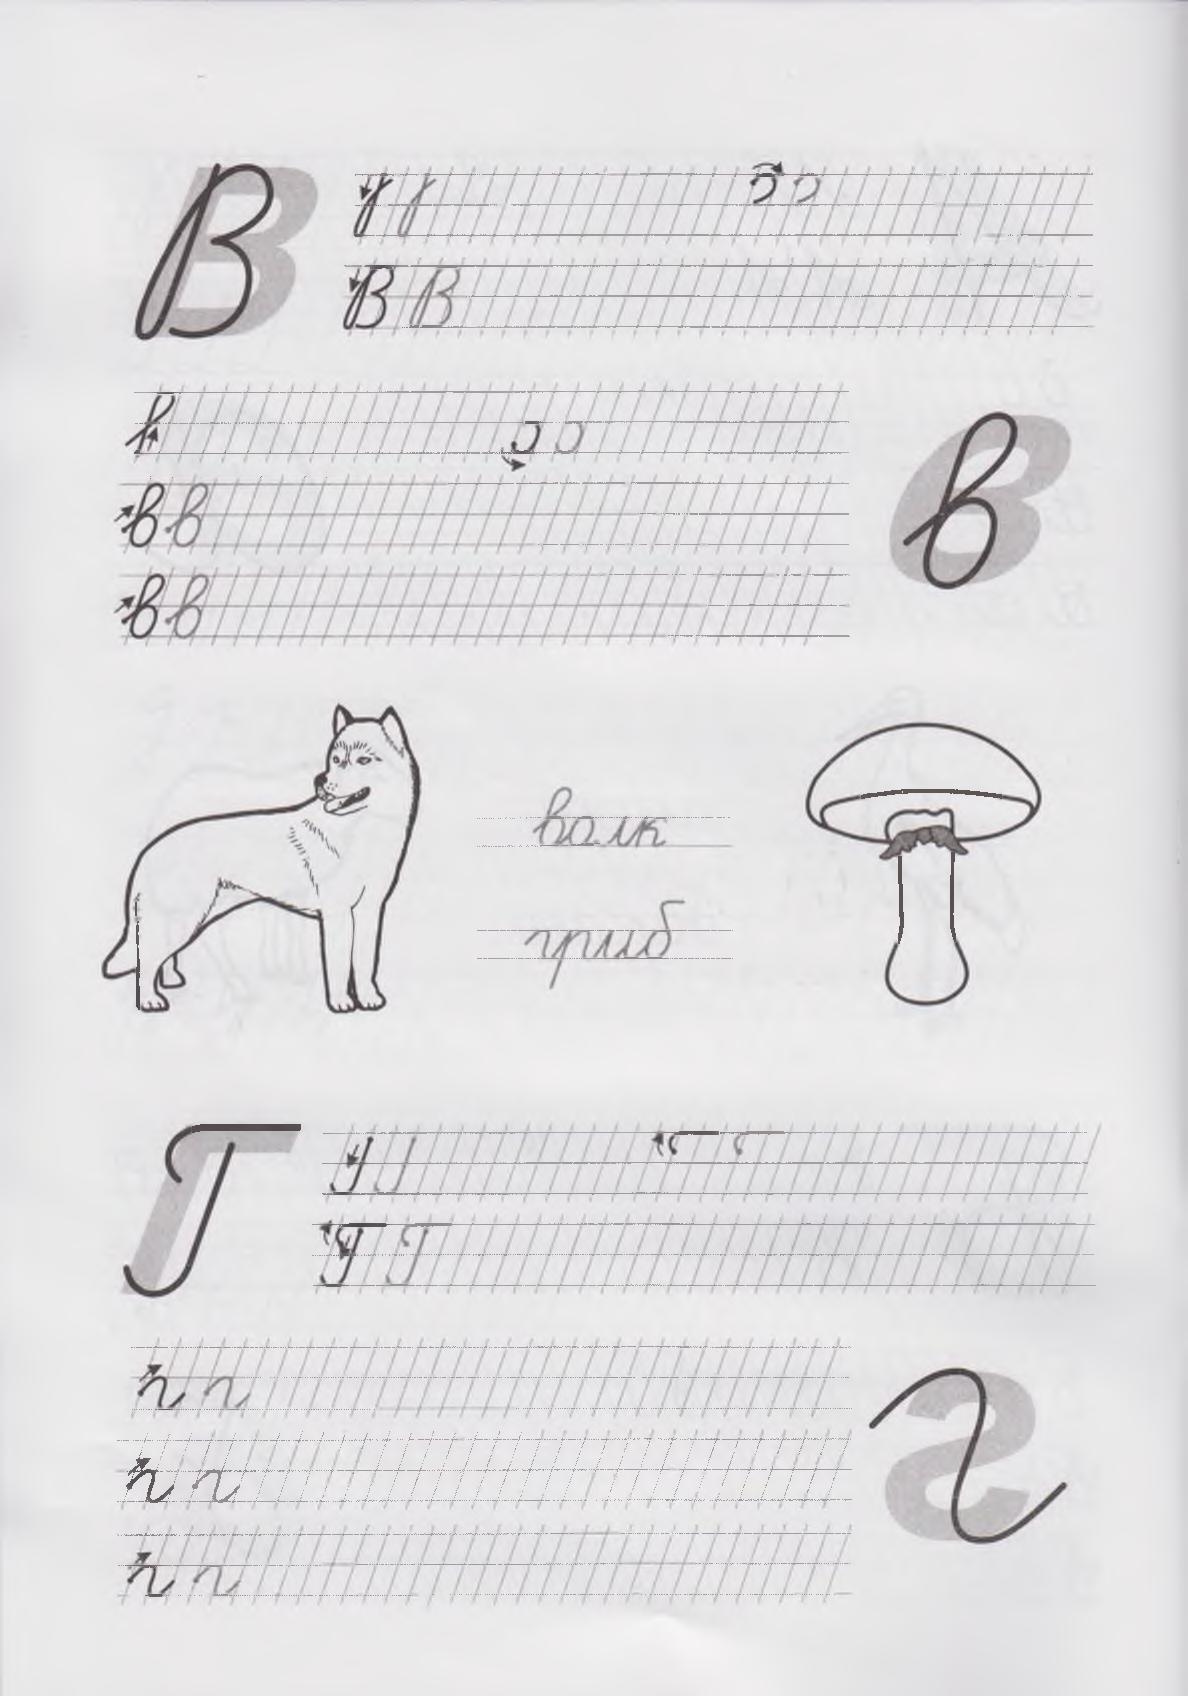 В
В В
в
в в
в в
в
волк
гриб
Г
Г Г
г г
г г
г г
г